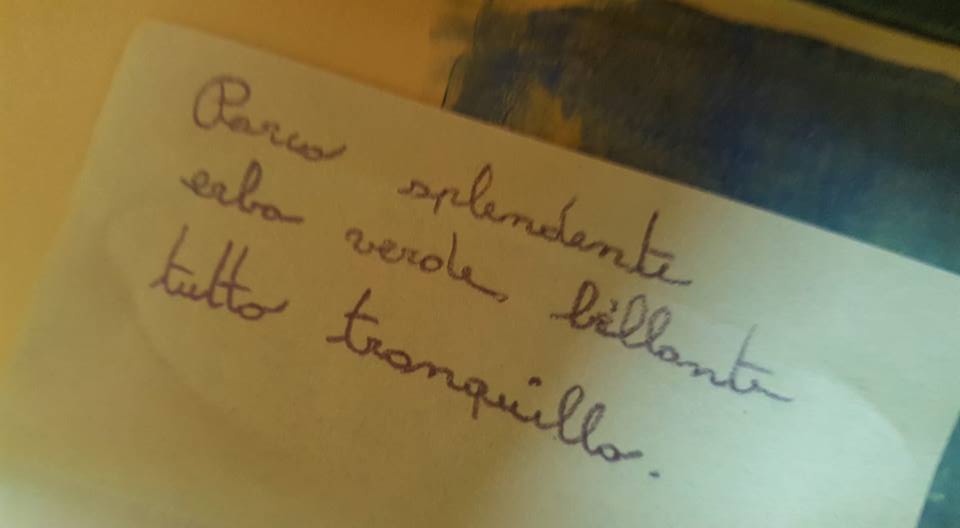 Parco splendente
erba verde, billante
tutto tranquillo.